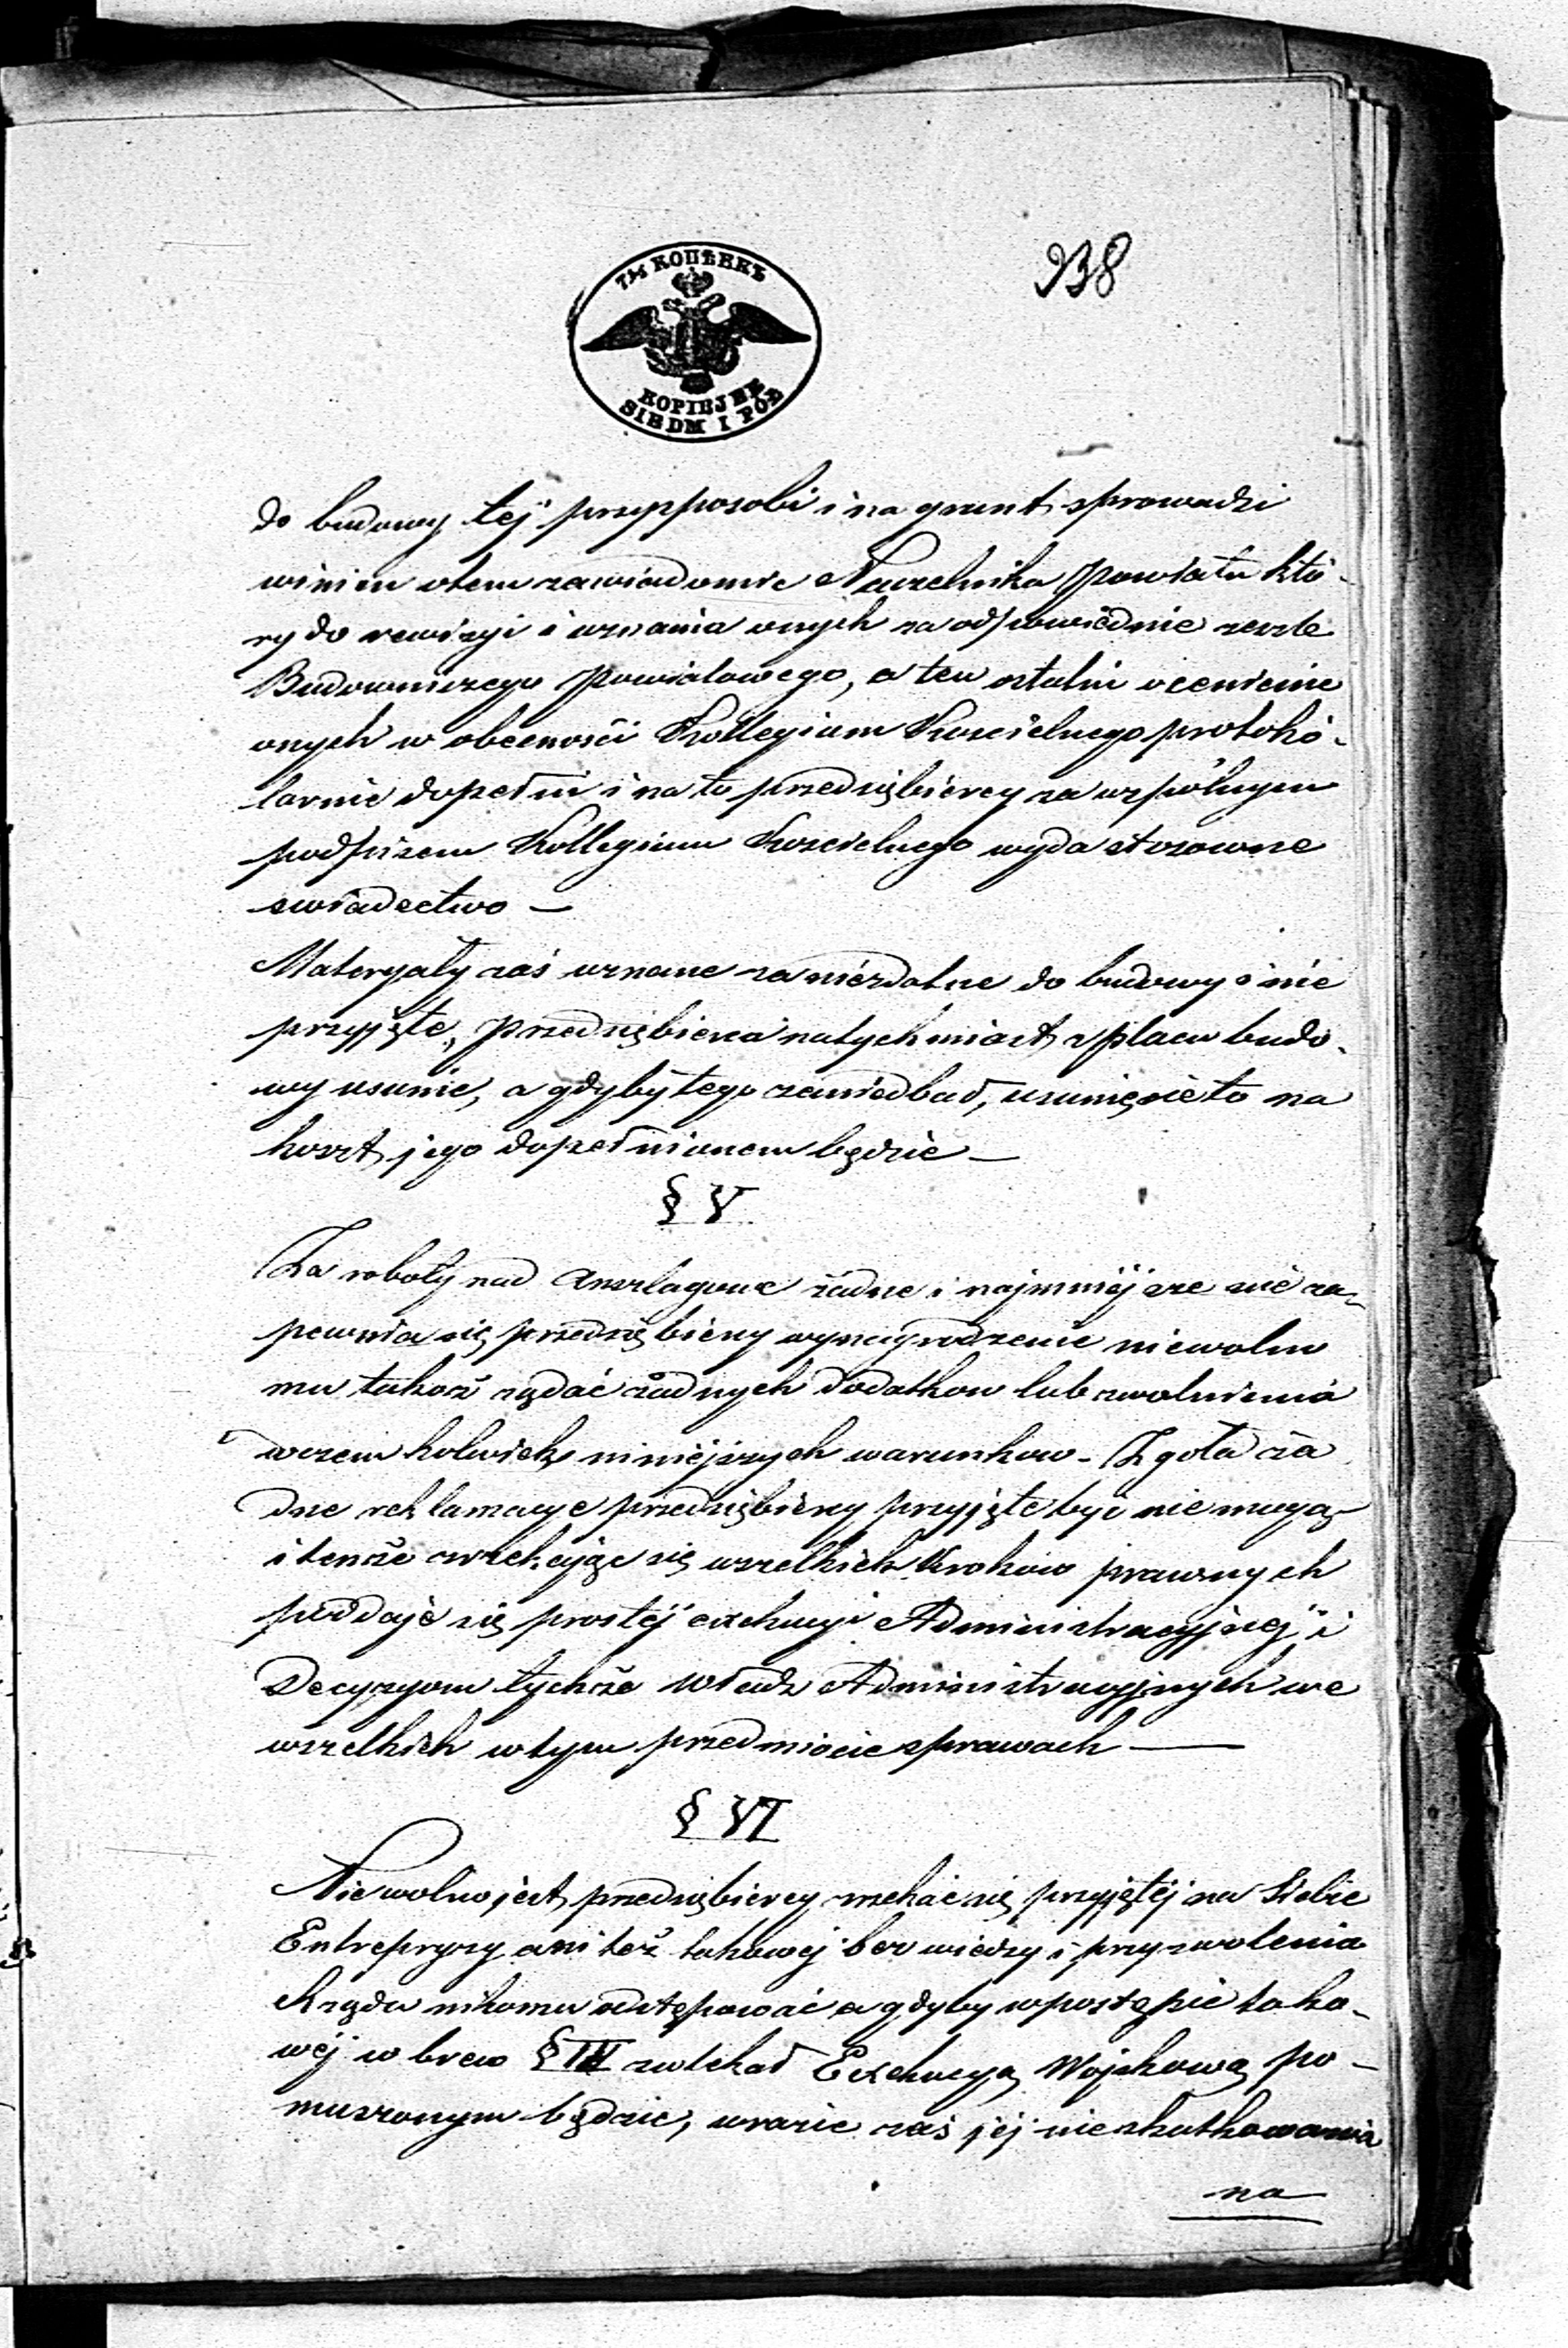 938
7½ КОПѢЕКЪ
KOPIEJEK
SIEDM I PÓŁ
do budowy tej przysposobi i na grunt sprowadzi
winien otem zawiadomić Naczelnika Powiatu któ-
ry do rewizyi i uznania onych za odpowiednie ześle
Budowniczego Powiatowego, a ten ostatni ocenienie
onych w obecności Kollegium Kościelnego protokó-
larnie dopełni i na to przedsiębiercy za wspólnym
podpisem Kollegium Koscielnego wyda stosowne
swiadectwo —
Materyały zaś uznane za niezdatne do budowy i nie
przyjęte, Przedsiębierca natychmiast z placu budo-
wy usunie, a gdyby tego zaniedbał, usunięcie to na
koszt jego dopełnionem będzie —
§ V
Za roboty nad anszlagowe żadne i najmniejsze nie za-
pewnia się przedsiębiercy wynagrodzenie niewolno
mu takoż żądać żadnych dodatkow lub zwolnienia
wczem kolwiek niniejszych warunkow - Zgoła ża
dne reklamacye przedsiębiercy przyjęte być nie mogą
i tenże zrzekając się wszelkich Krokow prawnych
poddaje się prostej exekucyi Administracyjnej i
Decyzyom tychże Władz Administracyjnych we
wszelkich wtym przedmiocie sprawach —
§ VI
Nie wolno jest przedsiębiercy zrzekać się przyjętej na Siebie
Entrepryzy ani też takowej bez wiedzy i przyzwolenia
Rządu nikomu odstępować a gdyby wpostępie tako-
wej w brew § IV zwlekał Exekucyą Wojskową po-
muszonym będzie, wrazie zaś jej nieskutkowania
na